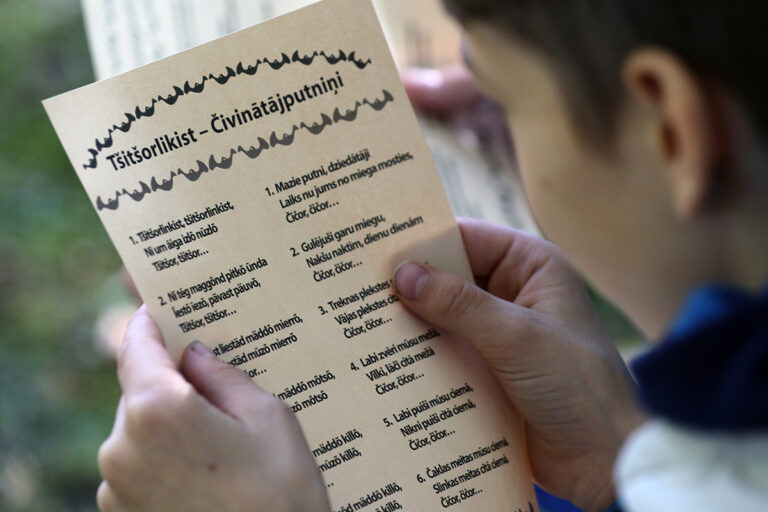 Tšitšorlikist – Čivinātājputniņi
1. Tšitšorlinkist, tšitšorlinkist,
Ni um āiga izõ nūzõ
Tšitšor, tšitšor...
2. Ni tēg maggõnd pitkõ ūnda
Iestõ iezõ, pāvast pāuvõ,
Tšitšor, tšitšor...
liestād māddõ mierrõ,
mūzõ mierrõ
māddõ mõtsõ,
mõtsõ
māddõ killõ,
mūzõ killõ,
māddõ killõ,
killõ,
1. Mazie putni, dziedātāji
Laiks nu jums no miega mosties,
Čičor, čičor...
2. Gulējuši garu miegu,
Nakšu naktim, dienu dienām
Čičor, čičor...
3. Treknas plekstes
Vājas plekstes
Čičor, čičor...
4. Labi zvēri mūsu
Vilki, lāči citā mežā
Čičor, čičor...
5. Labi puiši mūsu ciemā,
Nikni puiši citā ciemā,
Čičor, čičor...
6. Čaklas meitas mūsu ciemā
Slinkas meitas citā ciemā,
Čičor, čičor...